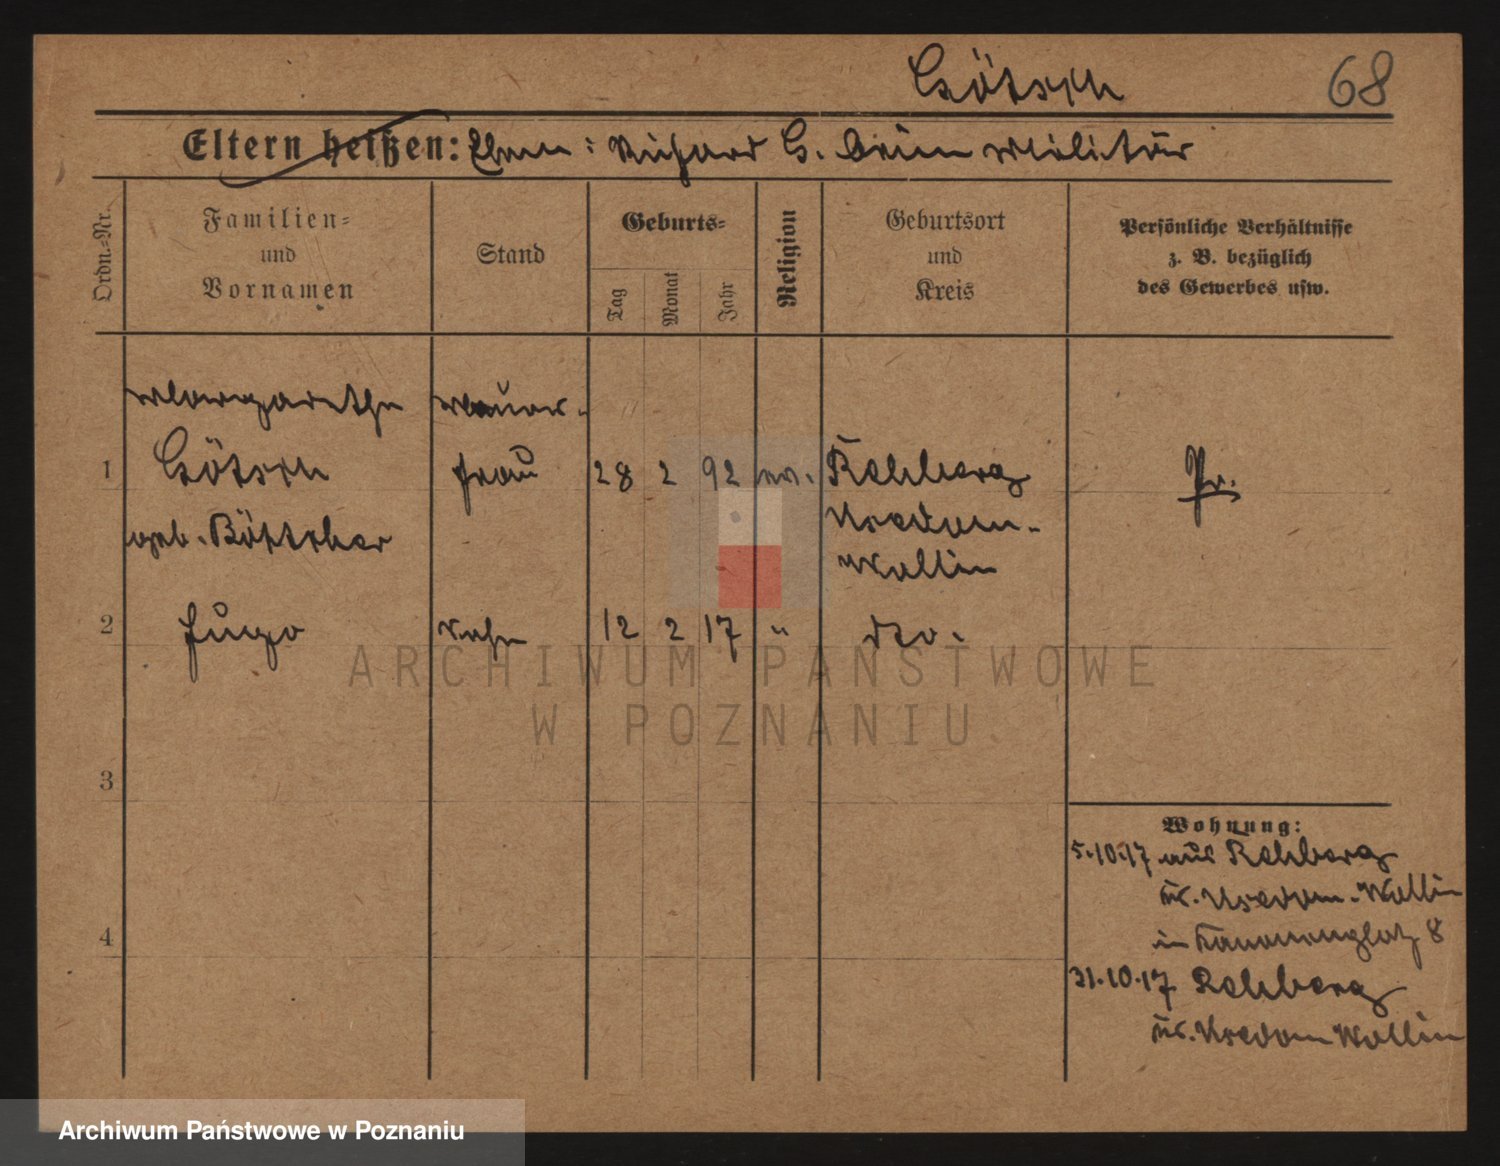 Götsch 68
Eltern heißen: Ehem: Richard G. beim Militär
Ordn.-Nr.
Familien-
und
Vornamen
Stand
Geburts-
Tag
Monat
Jahr
Religion
Geburtsort
und
Kreis
Persönliche Verhältnisse
z. B. bezüglich
des Gewerbes usw.
Margarethe
1 Götsch frau 28 2 92 ev. Rehberg Pr.
geb. Böttcher Usedom-
Wollin
2 Hugo Sohn 12 2 17 " dto.
3
4
Wohnung:
5.10.17 aus Rehberg
Kr. Usedom-Wollin
in Kanonenplatz 8
31.10.17 Rehberg
Kr. Usedom Wollin
ARCHIWUM PAŃSTWOWE
W POZNANIU
Archiwum Państwowe w Poznaniu